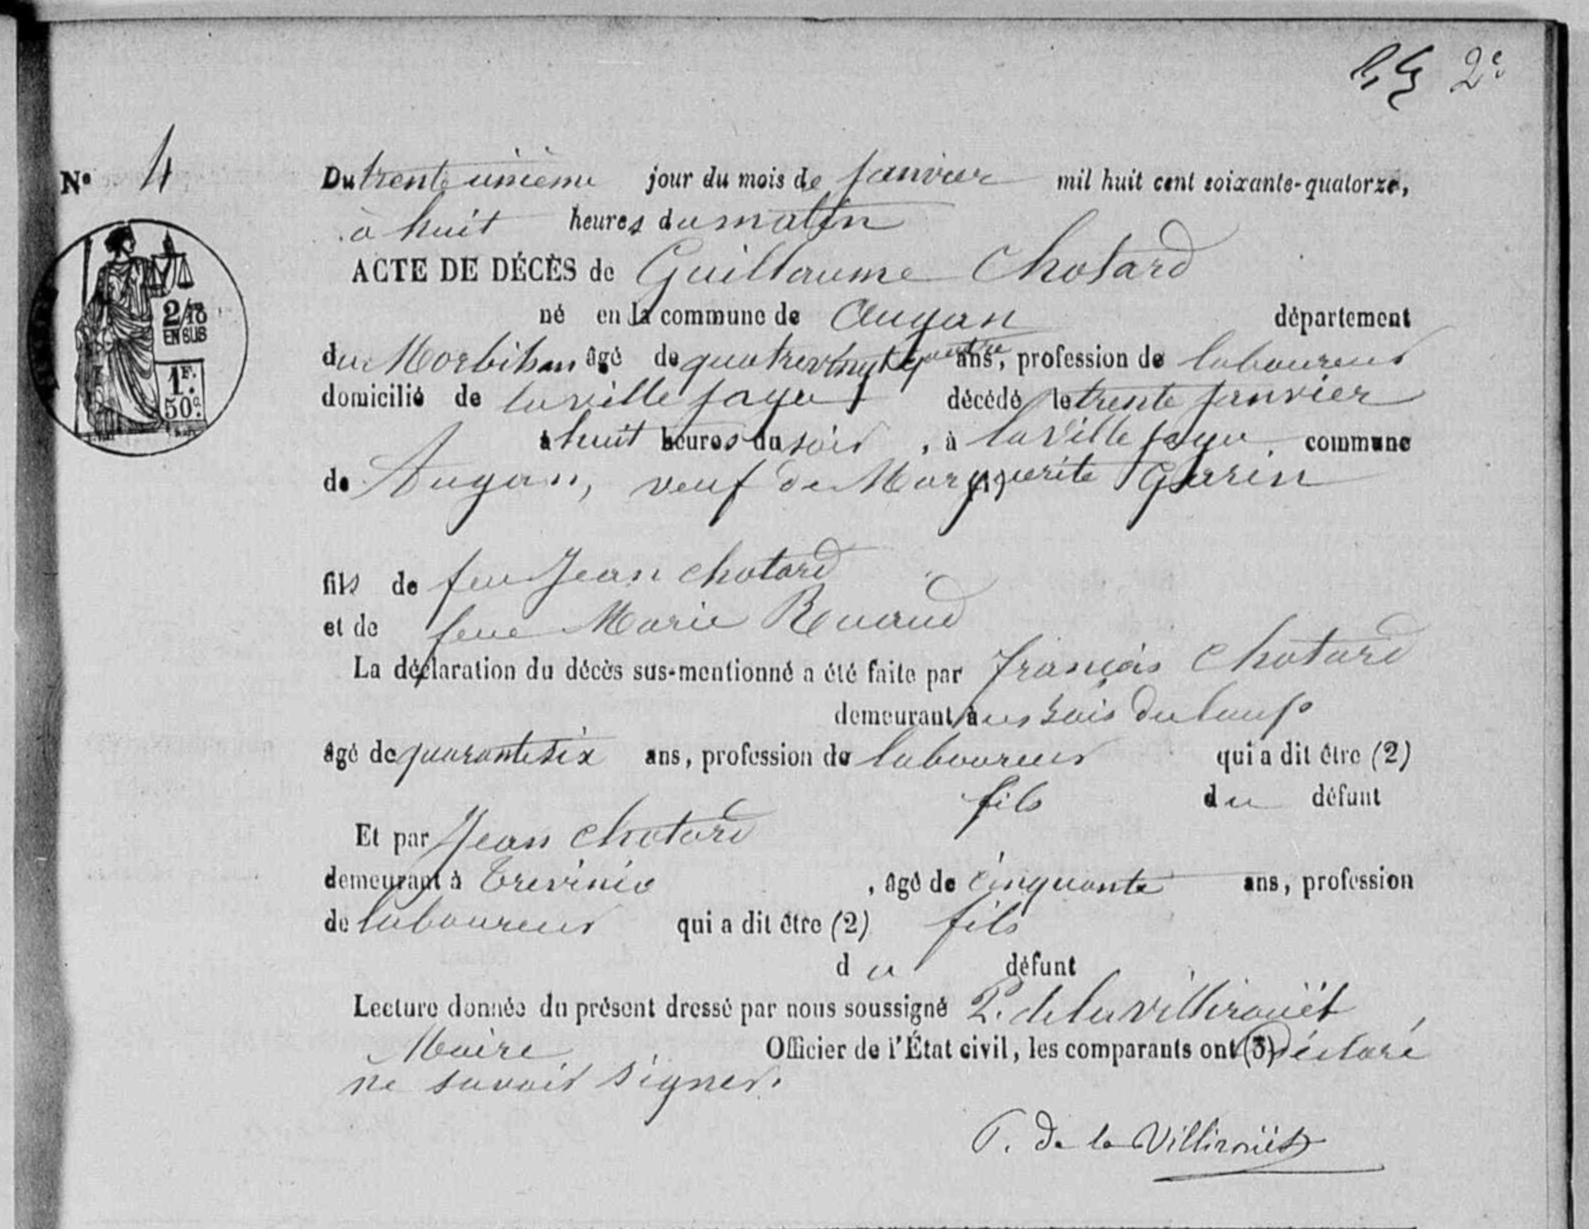 2e
No 4
Du trente unième jour du mois de janvier mil huit cent soixante-quatorze,
à huit heures du matin
ACTE DE DÉCÈS de Guillaume Chotard
né en la commune de Augan département
du Morbihan âgé de quatrevingt quatre ans, profession de laboureur
domicilié de la ville jaye décédé le trente janvier
à huit heures du soir, à la Ville jaye commune
de Augan, veuf de Marguerite (1) Garin
fils de feu Jean Chotard
et de feue Marie Ruaud
La déclaration du décès sus-mentionné a été faite par François Chotard
demeurant à au bois du loup
âgé de quarante six ans, profession de laboureur qui a dit être (2)
fils du défunt
Et par Jean Chotard
demeurant à Trevinio, âgé de cinquante ans, profession
de laboureur qui a dit être (2) fils
du défunt
Lecture donnée du présent dressé par nous soussigné P. de la Villirouët
Maire Officier de l'État civil, les comparants ont (3) déclaré
ne savoir signer.
P. de la Villirouët
2/10
EN SUS
1F.
50c.